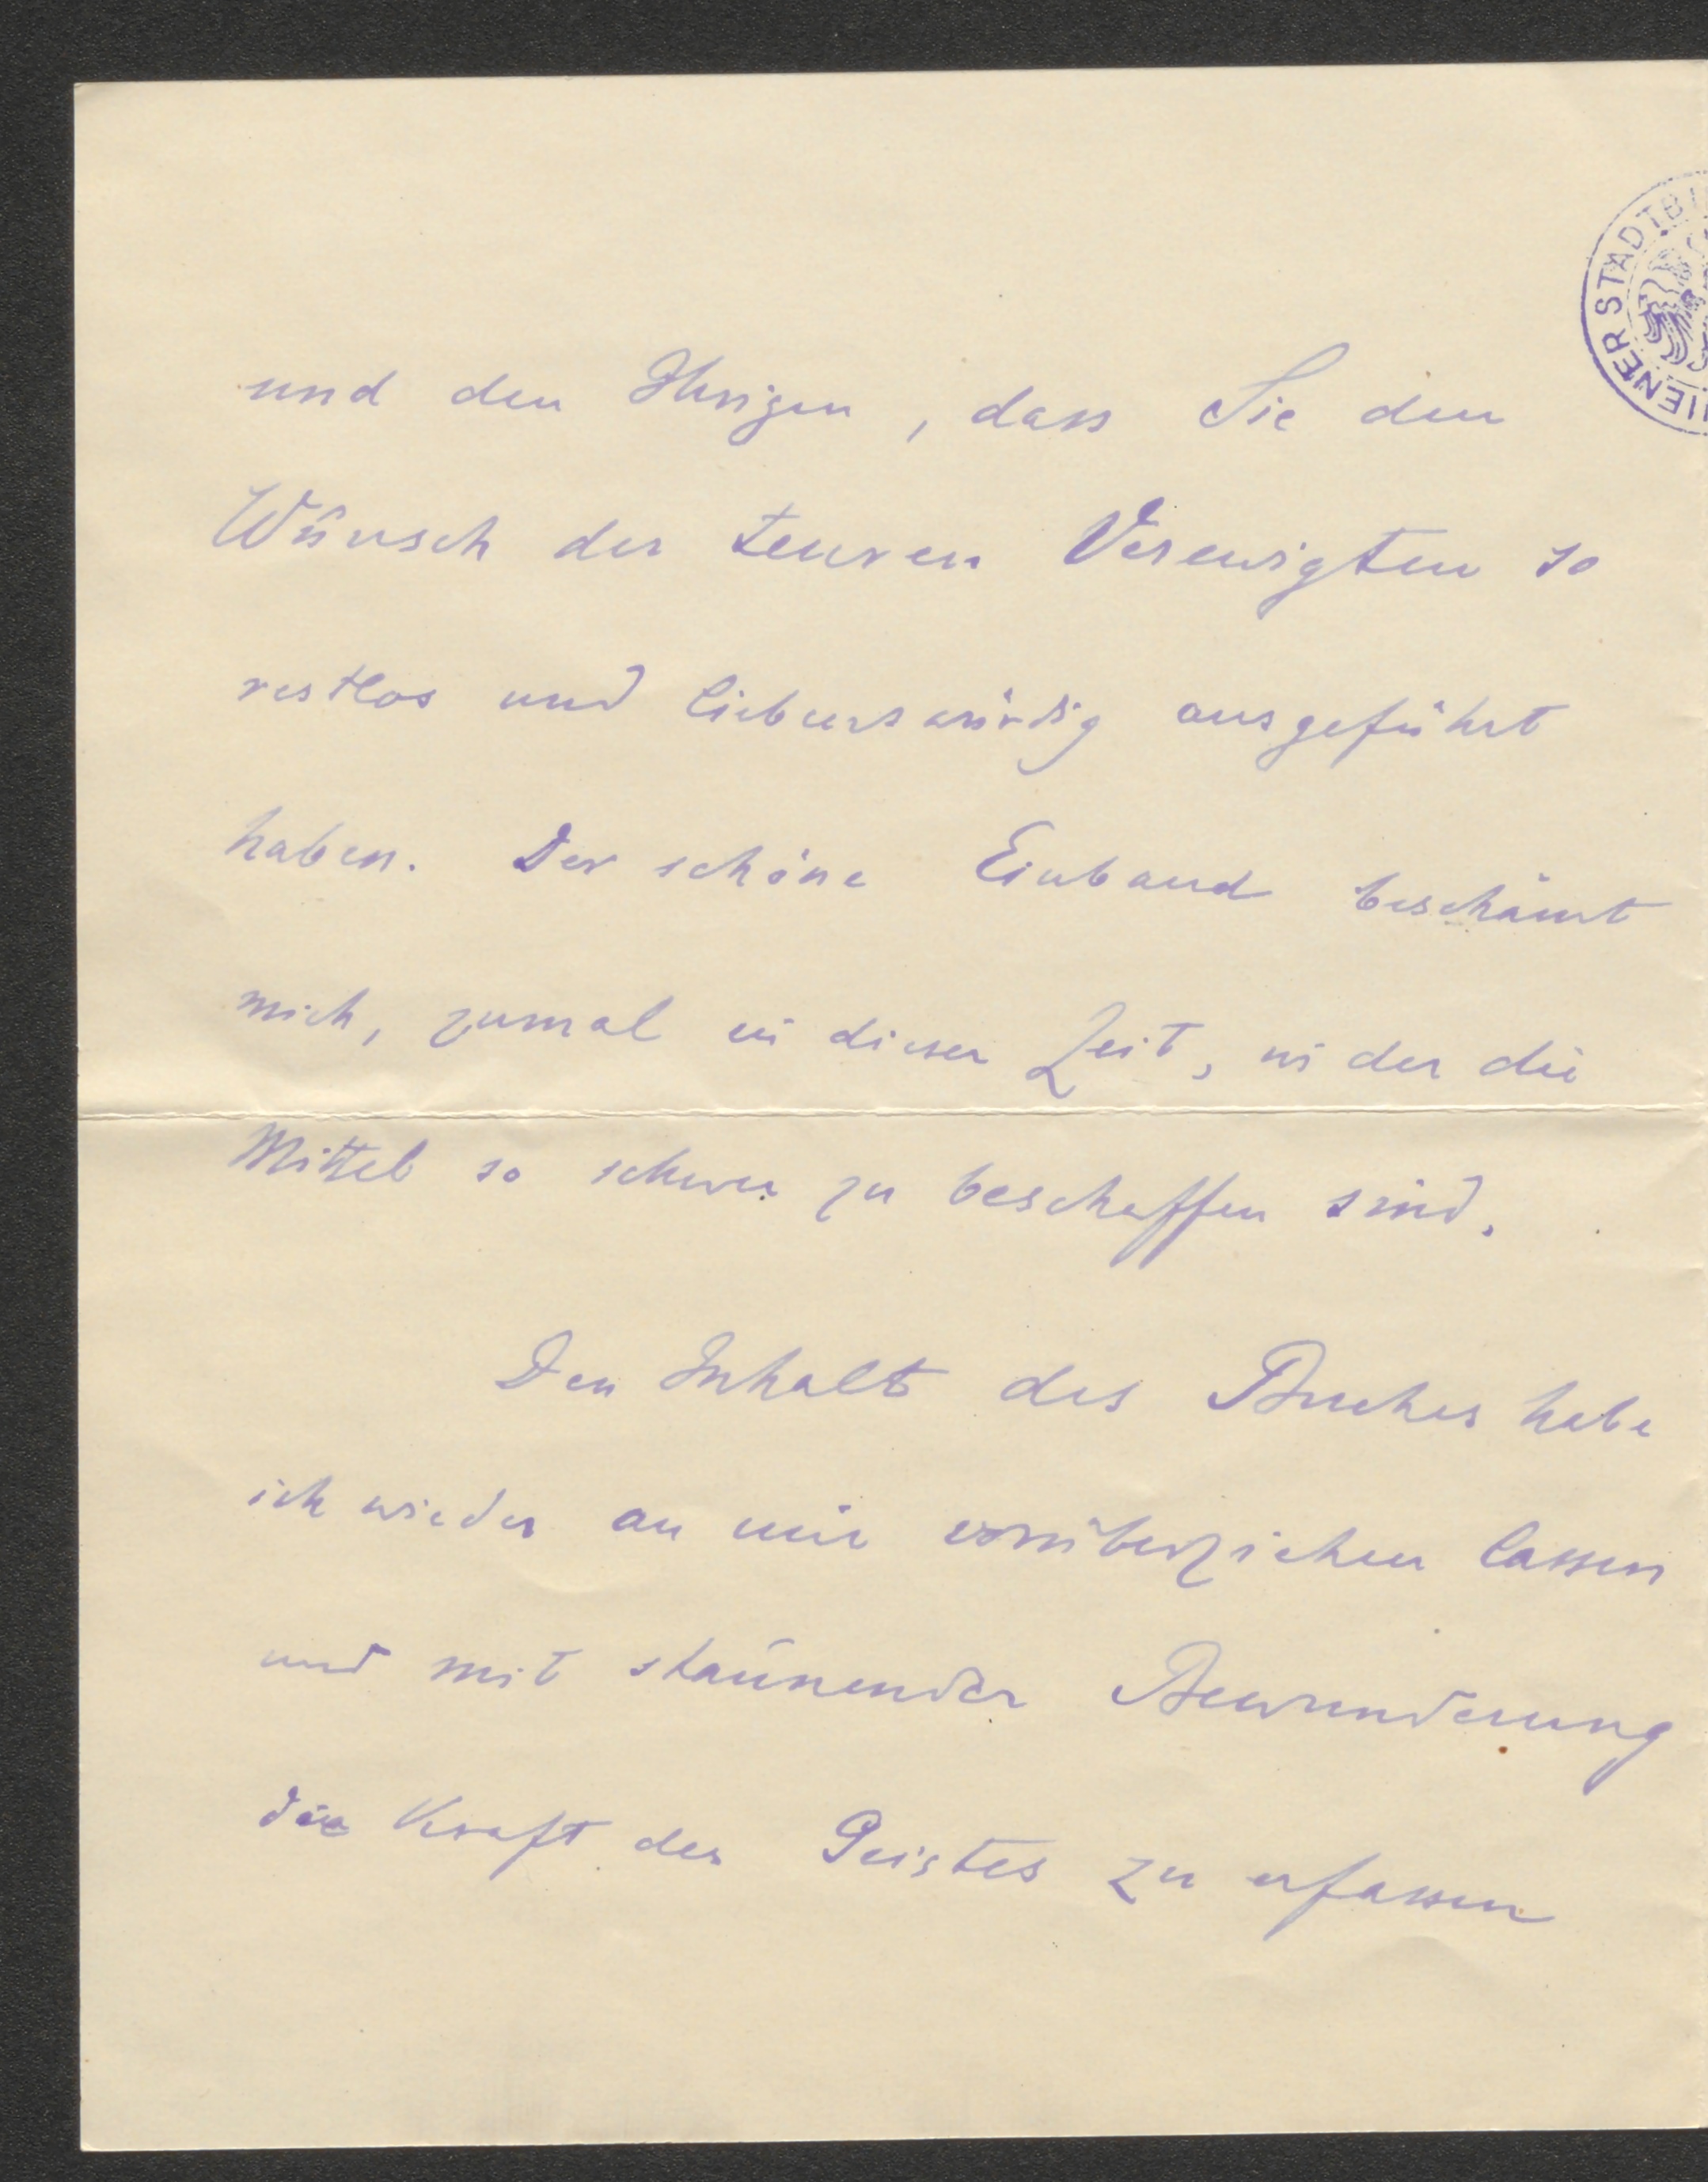 STADTBI
WIENER
und den Ihrigen, dass Sie den
Wunsch der teuren Verewigten so
restlos und liebenswürdig ausgeführt
haben. Der schöne Einband beschämt
mich, zumal in dieser Zeit, in der die
Mittel so schwer zu beschaffen sind.
Den Inhalt des Buches habe
ich wieder an mir vorüberziehen lassen
und mit staunender Bewunderung
die Kraft des Geistes zu erfassen